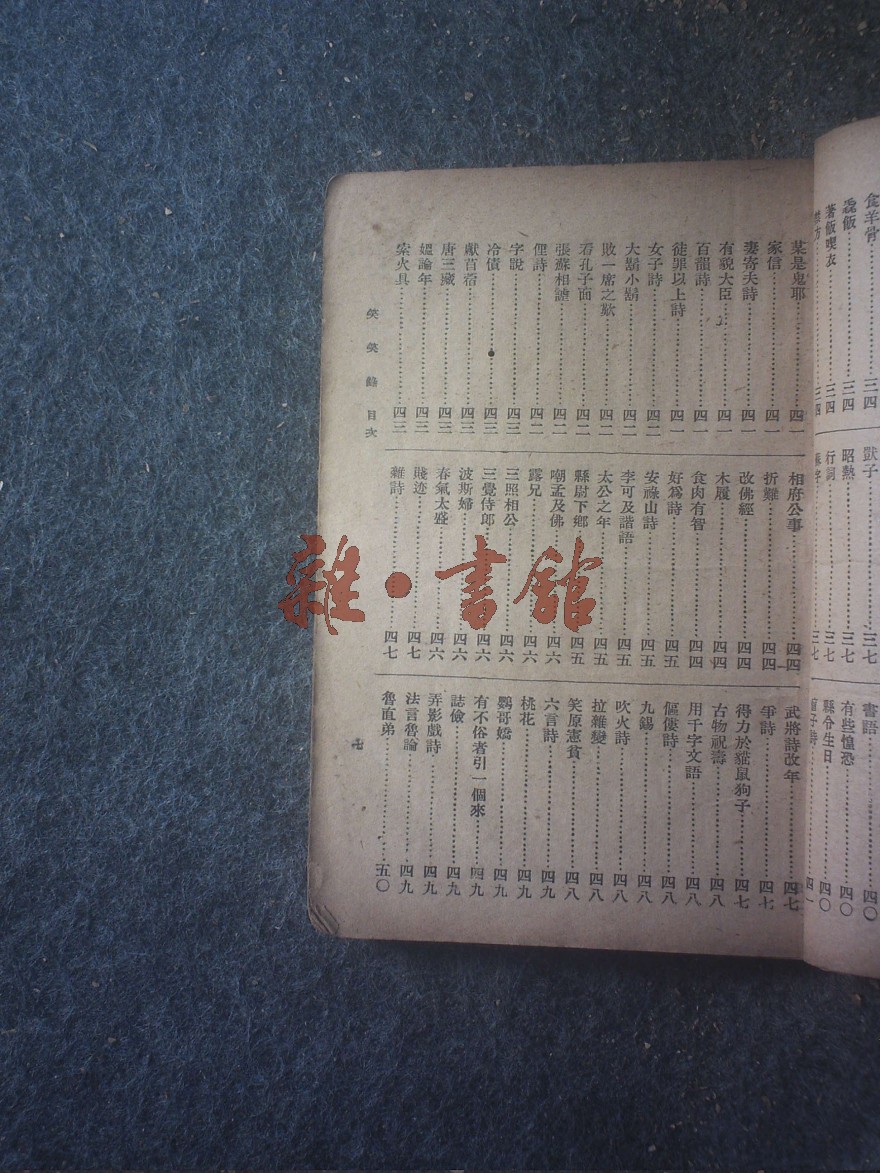 食羊骨……三四
毳飯……三四
著飯喫衣……三四
獃子……三七
昭熱……三七
行詞……三七
書語……四〇
有些惶恐……四〇
縣令生日……四〇
某是鬼耶……四一
家信……四一
妻寄夫詩……四一
有貌大臣……四一
百韻詩……四一
徒罪以上詩……四一
女子詩……四二
大鬍小鬍……四二
敗一席之歡……四二
看孔子面……四二
張蘇相謔……四二
俚詩……四二
字說……四三
冷債……四三
獻苜蓿……四三
唐三藏……四三
媼論年……四三
索火具……四三
相府公事……四四
折難……四四
改佛經……四四
木履……四四
食肉有智……四四
好爲詩……四五
安祿山詩……四五
李可及諧語……四五
太公之年……四五
縣尉下鄉……四五
嘲孟及佛……四六
露兄……四六
三照相公……四六
三覺侍郎……四六
波斯婦……四六
春氣太盛……四六
賤迹……四七
雜詩……四七
武將詩改年……四七
爭詩……四七
得力於貓鼠狗子……四七
古物祝壽……四八
用千字文語……四八
傴僂詩……四八
九錫……四八
吹火詩……四八
拉雜變……四八
笑原憲貧……四八
六言詩……四九
桃花……四九
鸚哥嬌……四九
有不俗者引一個來……四九
誌儉……四九
弄影戲詩……四九
法言魯論……四九
魯直弟……五〇
笑笑錄 目次
七
雜·書館